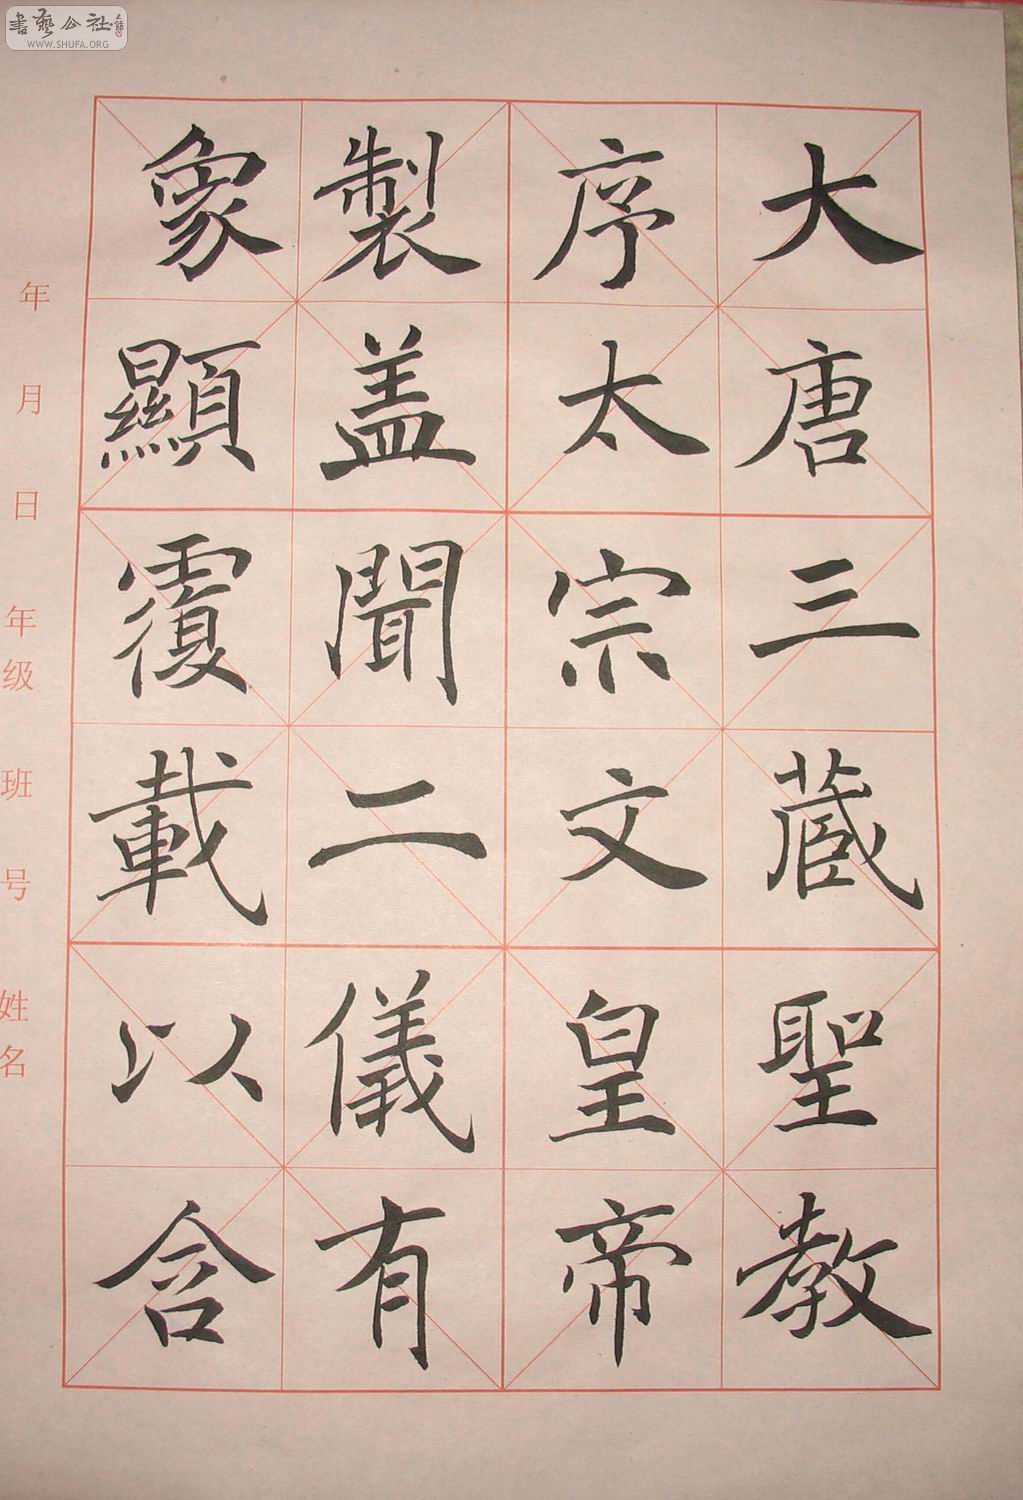 大唐三蔵聖教
序太宗文皇帝
製盖聞二儀有
象顯覆載以含
年 月 日 年级 班 号 姓名
書藝公社
WWW.SHUFA.ORG